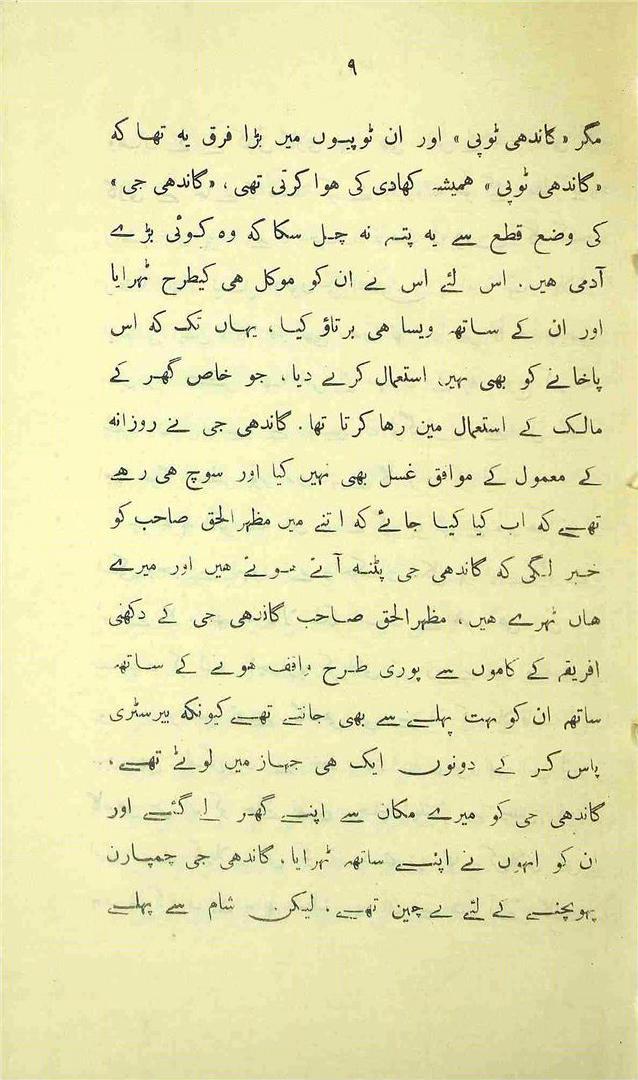 ۹
مگر «گاندھی ٹوپی» اور ان ٹوپیوں میں بڑا فرق یه تھا که
«گاندھی ٹوپی» ھمیشه کھادی کی ھوا کرتی تھی، «گاندھی جی»
کی وضع قطع سے یه پته نه چل سکا که وه کوئی بڑے
آدمی ھیں. اس لئے اس نے ان کو موکل ھی کیطرح ٹھرایا
اور ان کے ساتھ ویسا ھی برتاؤ کیا، یہاں تک که اس
پاخانے کو بھی نہیں استعمال کرنے دیا، جو خاص گھر کے
مالک کے استعمال مین رھا کرتا تھا. گاندھی جی نے روزانه
کے معمول کے موافق غسل بھی نہیں کیا اور سوچ ھی رھے
تھے که اب کیا کیا جائے که اتنے میں مظہرالحق صاحب کو
خبر لگی که گاندھی جی پٹنه آئے ھوئے ھیں اور میرے
ھاں ٹھرے ھیں، مظہرالحق صاحب گاندھی جی کے دکھنی
افریقه کے کاموں سے پوری طرح واقف ھونے کے ساتھ
ساتھ ان کو بہت پہلے سے بھی جانتے تھے کیونکه بیرسٹری
پاس کر کے دونوں ایک ھی جہاز میں لوٹے تھے.
گاندھی جی کو میرے مکان سے اپنے گھر لے گئے اور
ان کو انہوں نے اپنے ساتھ ٹھرایا. گاندھی جی چمپارن
پہونچنے کے لئے بے چین تھے. لیکن شام سے پہلے